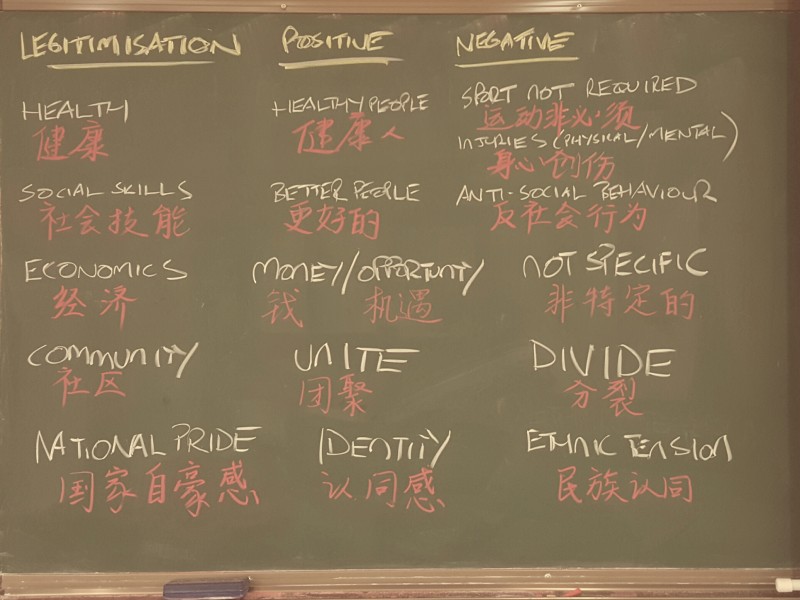 LEGITIMISATION POSITIVE NEGATIVE
HEALTH HEALTHY PEOPLE SPORT NOT REQUIRED
健康 健康人 运动非必须
INJURIES (PHYSICAL/MENTAL)
身心创伤
SOCIAL SKILLS BETTER PEOPLE ANTI-SOCIAL BEHAVIOUR
社会技能 更好的 反社会行为
ECONOMICS MONEY/OPPORTUNITY NOT SPECIFIC
经济 钱 机遇 非特定的
COMMUNITY UNITE DIVIDE
社区 团聚 分裂
NATIONAL PRIDE IDENTITY ETHNIC TENSION
国家自豪感 认同感 民族认同